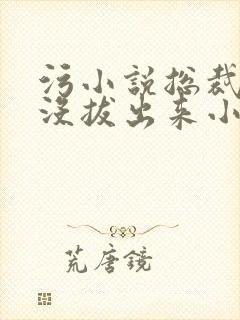 污小说总裁
没拔出来小
荒唐镜